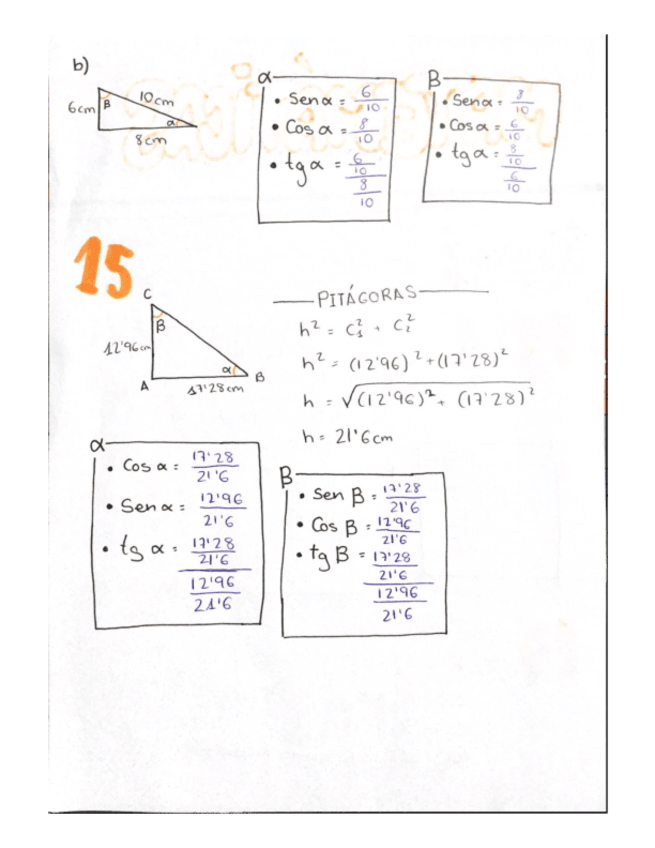 b)
6cm
B
10cm
α
8cm
α
• Sen α = 6/10
• Cos α = 8/10
• tg α = 6/10 / 8/10
B
• Sen α = 8/10
• Cos α = 6/10
• tg α = 8/10 / 6/10
15
C
B
12'96cm
α
A
17'28cm
B
PITÁGORAS
h² = C₁² + C₂²
h² = (12'96)² + (17'28)²
h = √(12'96)² + (17'28)²
h = 21'6cm
α
• Cos α = 17'28/21'6
• Sen α = 12'96/21'6
• tg α = 17'28/21'6 / 12'96/21'6
B
• Sen B = 17'28/21'6
• Cos B = 12'96/21'6
• tg B = 17'28/21'6 / 12'96/21'6